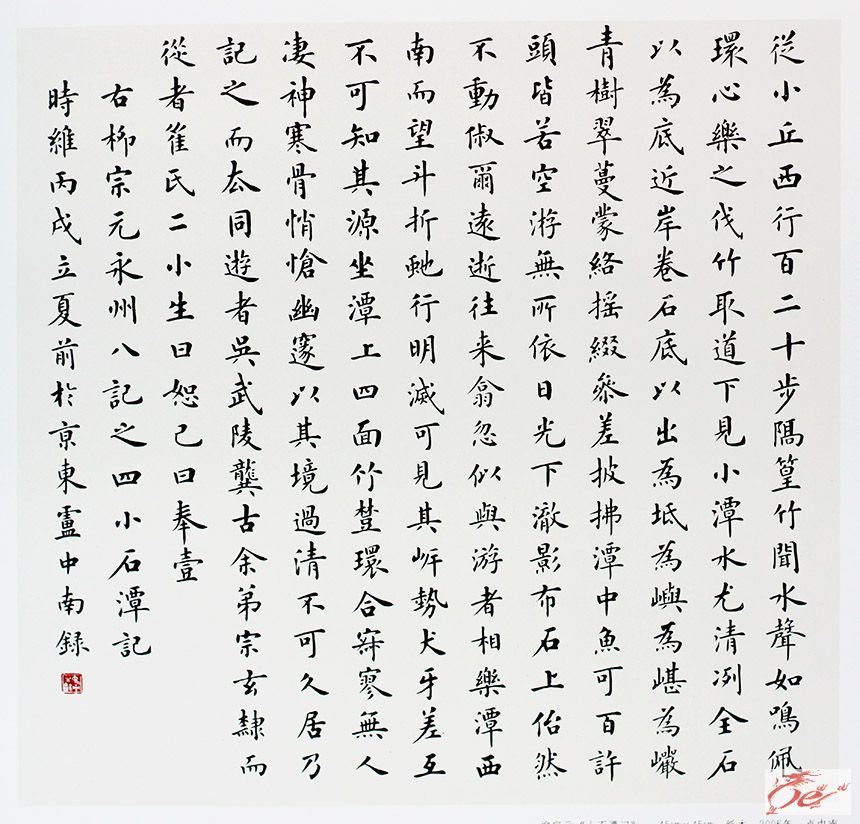 從小丘西行百二十步隔篁竹聞水聲如鳴佩
環心樂之伐竹取道下見小潭水尤清冽全石
以為底近岸卷石底以出為坻為嶼為嵁為巖
青樹翠蔓蒙絡搖綴參差披拂潭中魚可百許
頭皆若空游無所依日光下澈影布石上佁然
不動俶爾遠逝往来翕忽似與游者相樂潭西
南而望斗折虵行明滅可見其岸勢犬牙差互
不可知其源坐潭上四面竹樹環合寂寥無人
凄神寒骨悄愴幽邃以其境過清不可久居乃
記之而去同遊者吳武陵龔古余弟宗玄隸而
從者崔氏二小生曰恕己曰奉壹
右柳宗元永州八記之四小石潭記
時維丙戌立夏前於京東盧中南録